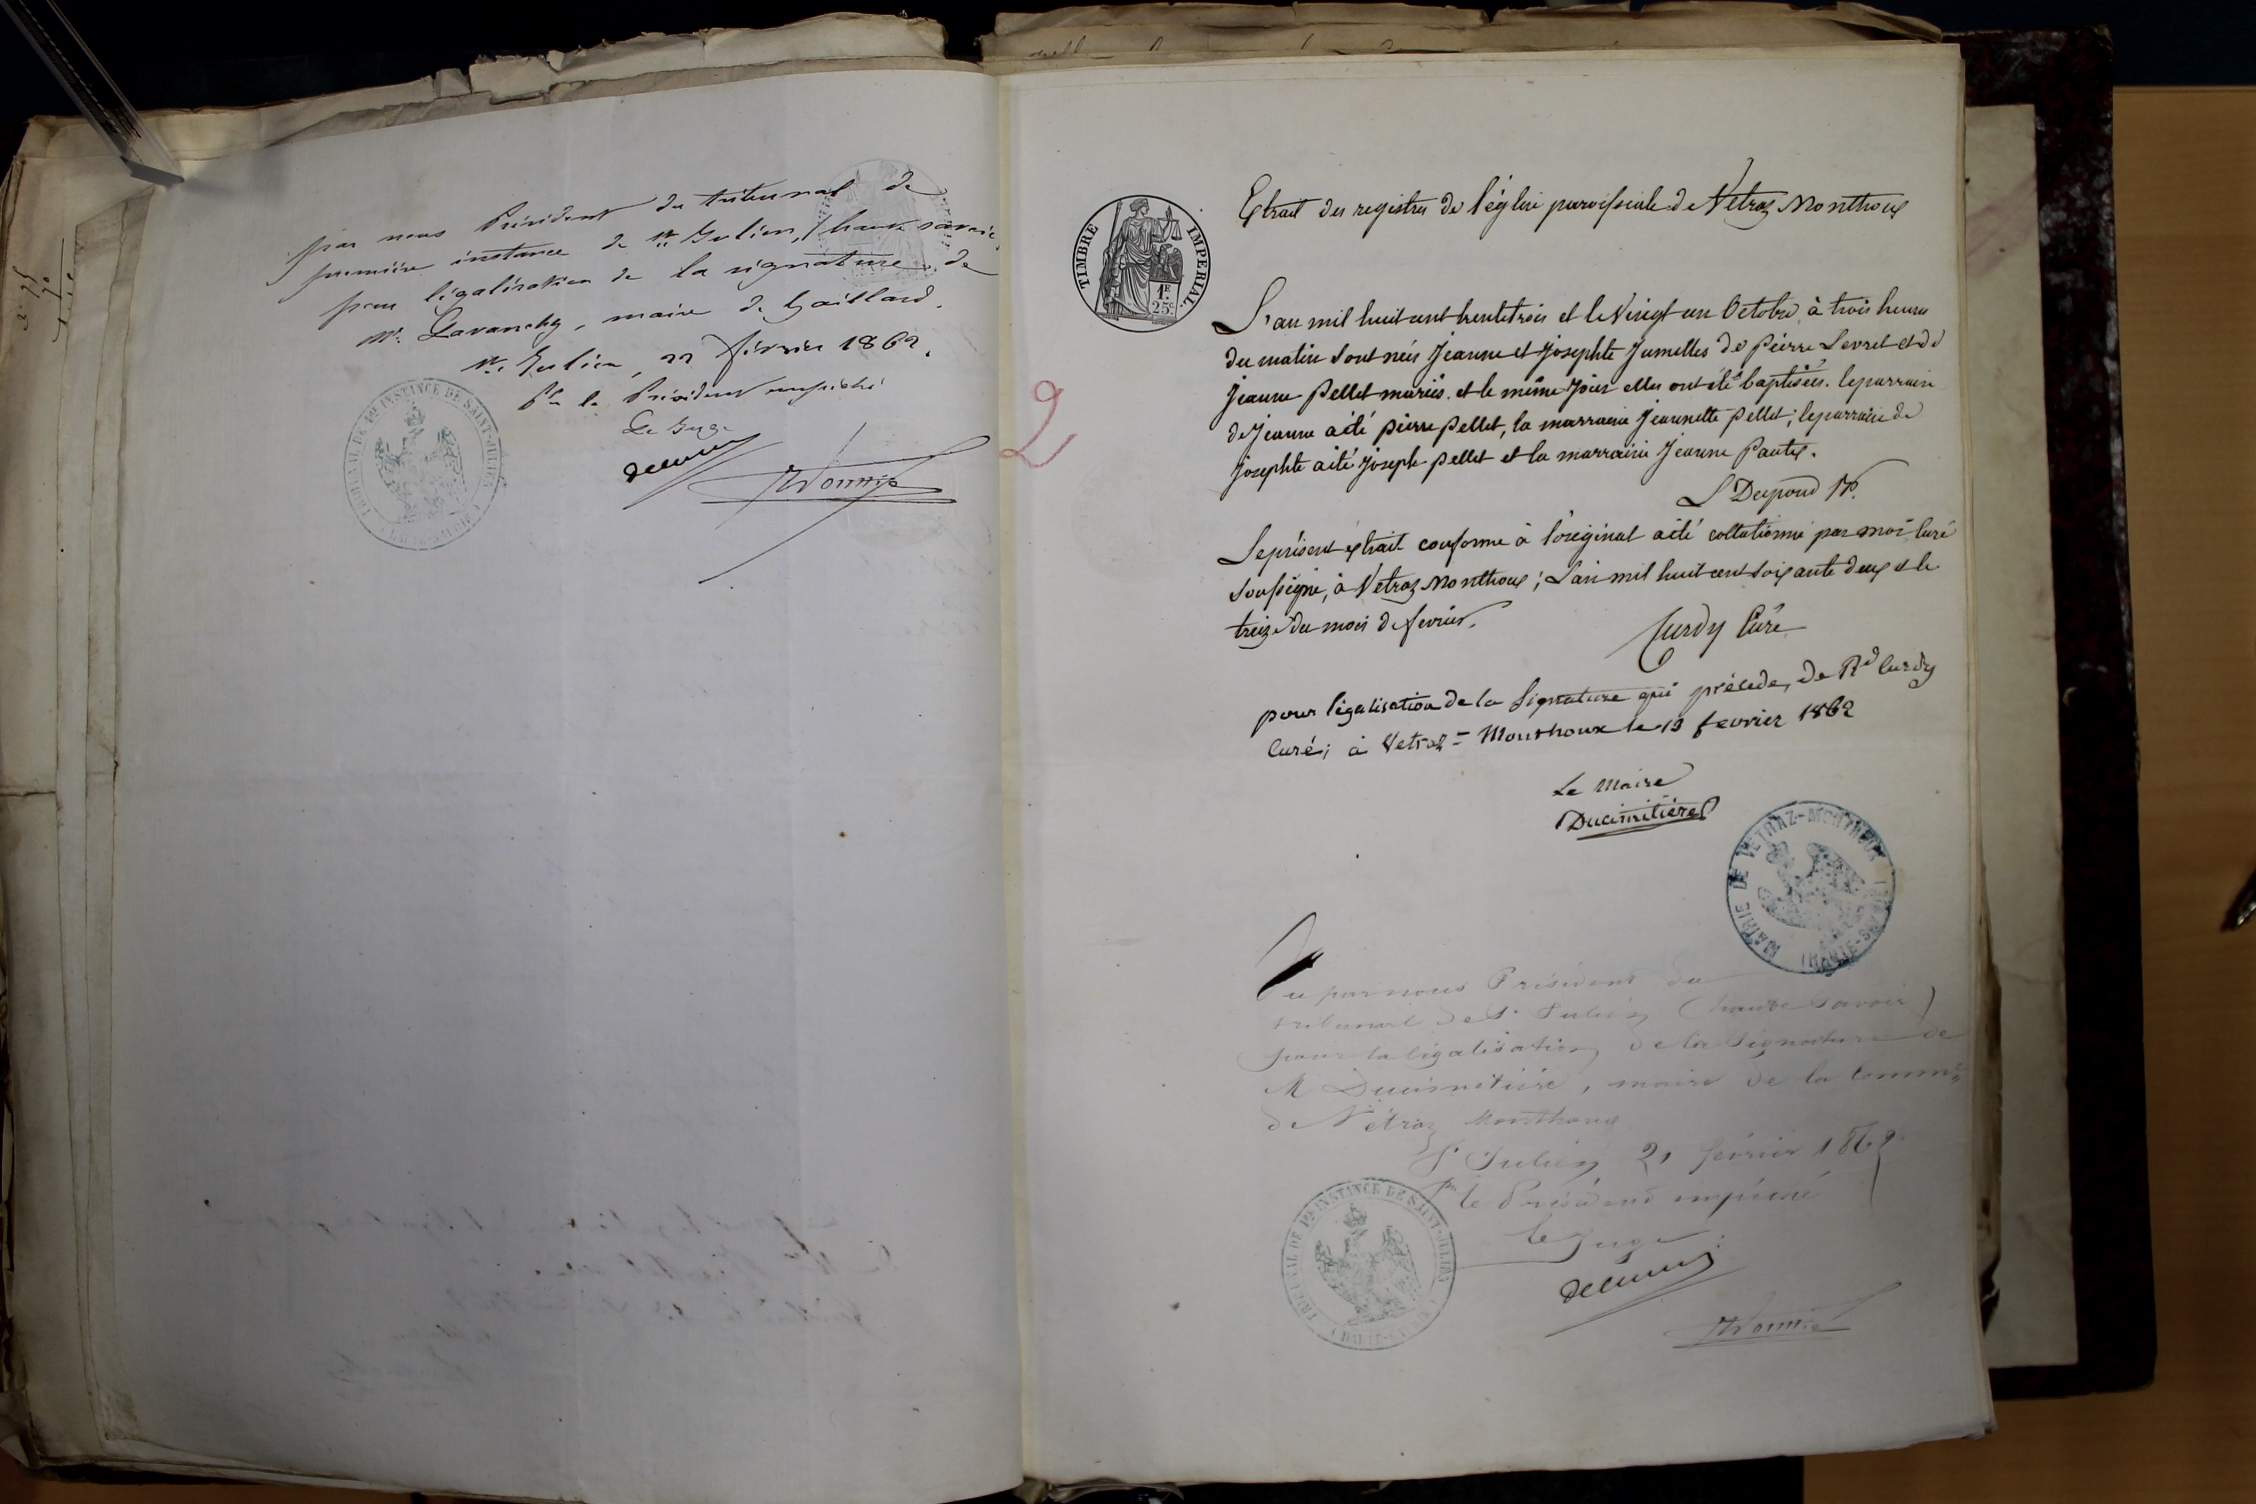 par nous Président du tribunal de
première instance de St Julien, (haute savoie,
pour légalisation de la signature de
Mr. Lavanchy, maire de Gaillard.
St. Julien, 22 février 1862.
Pr le Président empêché
Le Juge
TRIBUNAL DE 1RE INSTANCE DE SAINT-JULIEN
2
TIMBRE IMPERIAL.
1F
25c
Extrait des registres de l'église paroissiale de Vetraz Monthoux
L'an mil huit cent trente trois et le vingt un Octobre à trois heures
du matin sont nées Jeanne et Josephte Jumelles de Pierre Levret et de
Jeanne Pellet mariés. et le même jour elles ont été baptisées. le parrain
de Jeanne a été pierre pellet, la marraine Jeannette pellet; le parrain de
josephte a été joseph pellet et la marraine Jeanne Pautex.
Le présent extrait conforme à l'original a été collationné par moi Curé
soussigné, à Vetraz Monthoux; L'an mil huit cent soixante deux et le
treize du mois de février.
Curdy Curé
pour légalisation de la Signature qui précède, de Rd Curdy
Curé; à Vetraz = Monthoux le 13 fevrier 1862
Le Maire
Ducimitière
MAIRIE DE VETRAZ-MONTHOUX (HAUTE-SAVOIE)
Vu par nous Président du
tribunal de St Julien (haute Savoie)
pour la légalisation de la Signature de
M Ducimetière, maire de la Comm
de Vétraz Monthoux
St Julien 21 février 1862
Pr le Président empêché
le Juge
TRIBUNAL DE 1RE INSTANCE DE SAINT-JULIEN